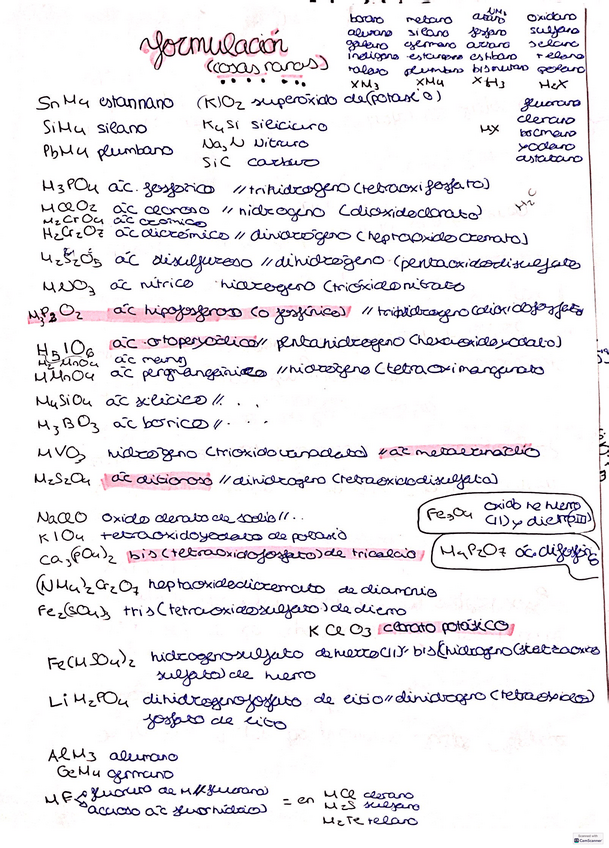 formulación
(cosas raras)
borano metano azano NH3 oxidano
alumano silano fosfano sulfano
galano germano arsano selano
indigano estannano estibano telano
talano plumbano bismutano polano
XH3 XH4 XH3 H2X
SnH4 estannano (K)O2 superóxido de (potasio)
SiH4 silano K4Si siliciuro
PbH4 plumbano Na3N Nitruro
SiC carburo
HX
fluorano
clorano
bromano
yodano
astatano
H3PO4 ác. fosfórico // trihidrógeno (tetraoxifosfato)
HClO2 ác cloroso // hidrógeno (dioxidoclorato)
H2CrO4 ác crómico
H2Cr2O7 ác dicrómico // dihidrógeno (heptaoxidocromato)
H2S2O5 ác disulfuroso // dihidrógeno (pentaoxidodisulfato
HNO3 ác nítrico hidrogeno (trioxidonitrato
H3PO2 ác hipofosforoso (o fosfínico) // trihidrógeno (dioxidofosfato
H5IO6 ác ortoperyódico // pentahidrogeno (hexaoxidoyodato)
H2MnO4 ác mang
HMnO4 ác permangánico // hidrógeno (tetraoximanganato
H4SiO4 ác silícico // . . .
H3BO3 ác bórico // . . .
HVO3 hidrógeno (trioxidovanadato) // ác metavanádico
H2S2O4 ác ditionoso // dihidrogeno (tetraoxidodisulfato)
NaClO oxido clorato de sodio // ..
Fe3O4 oxido de hierro (II) y dihierro (III)
KIO4 tetraoxidoyodato de potasio
Ca3(PO4)2 bis (tetraoxidofosfato) de tricalcio
H4P2O7 ác. difosfóri
(NH4)2Cr2O7 heptaoxidodicromato de diamonio
Fe2(SO4)3 tris (tetraoxidosulfato) de dihierro
KClO3 clorato potásico
Fe(HSO4)2 hidrogenosulfato de hierro (II) - bis (hidrogeno (tetraoxido
sulfato) de hierro
LiH2PO4 dihidrogenofosfato de litio // dihidrogeno (tetraoxido)
fosfato de litio
AlH3 alumano
GeH4 germano
HF fluoruro de H // fluorano
acuoso ác fluorhídrico
= en HCl clorano
H2S sulfano
H2Te telano
Scanned with
CamScanner